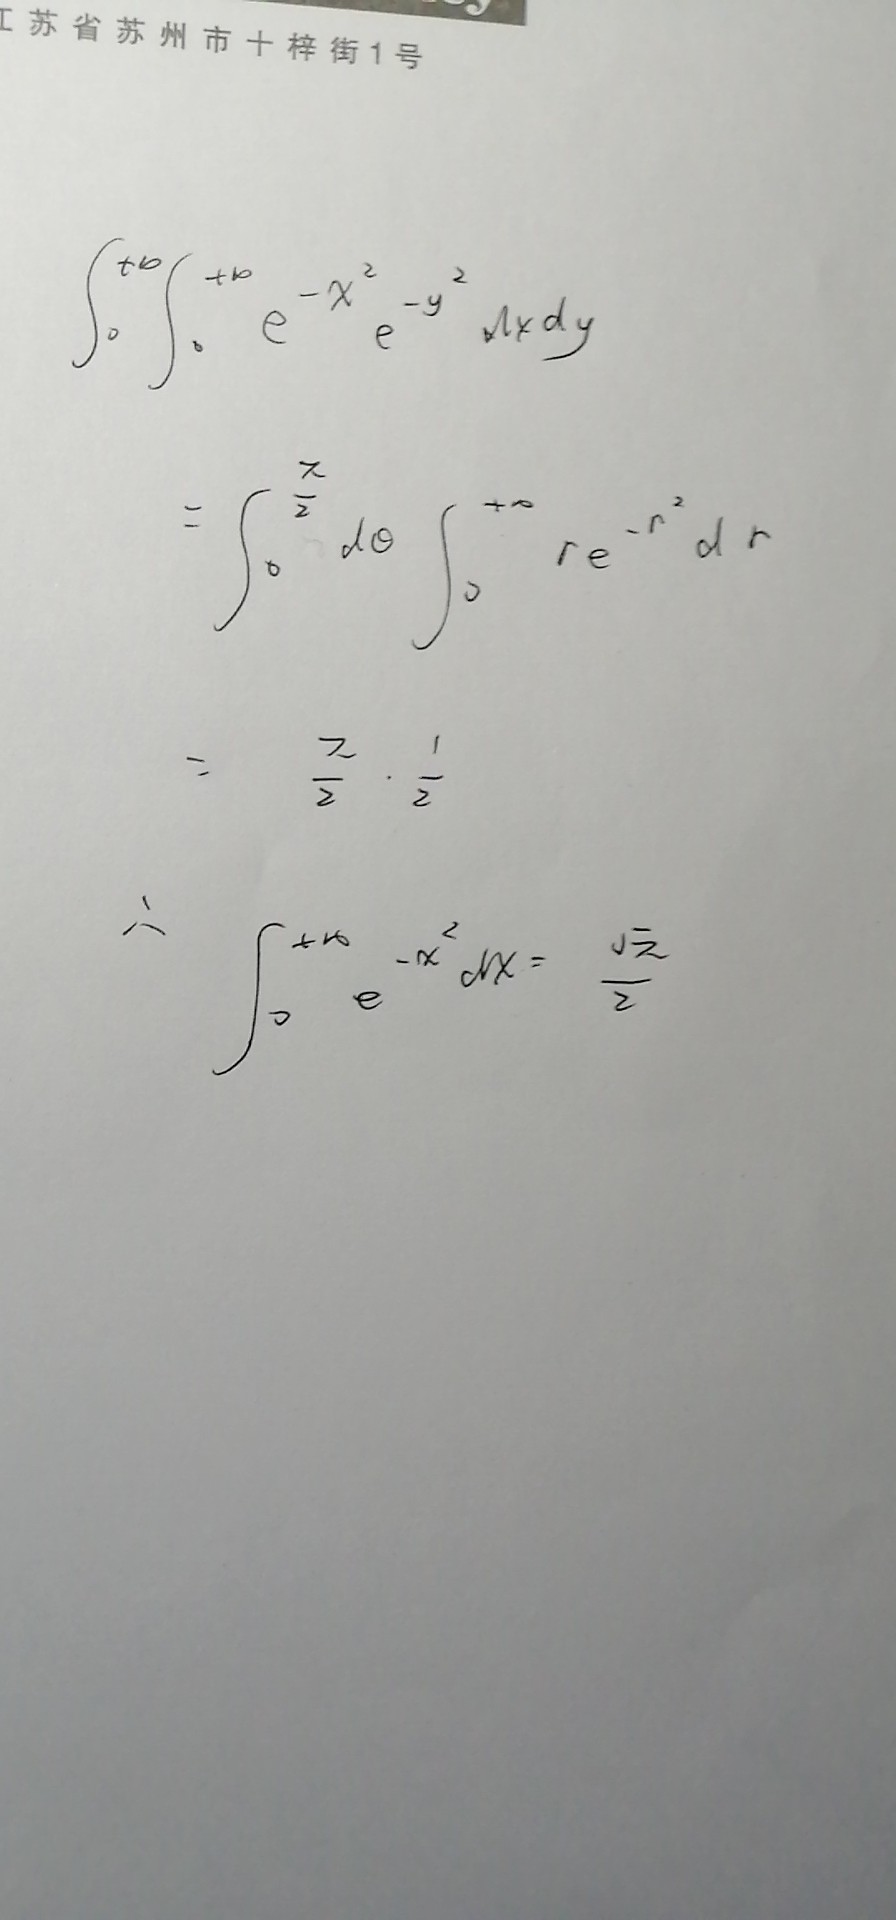 江苏省苏州市十梓街1号
∫₀^{+∞} ∫₀^{+∞} e^{-x²} e^{-y²} dxdy
= ∫₀^{π/2} dθ ∫₀^{+∞} re^{-r²} dr
= π/2 · 1/2
∴ ∫₀^{+∞} e^{-x²} dx = √π/2